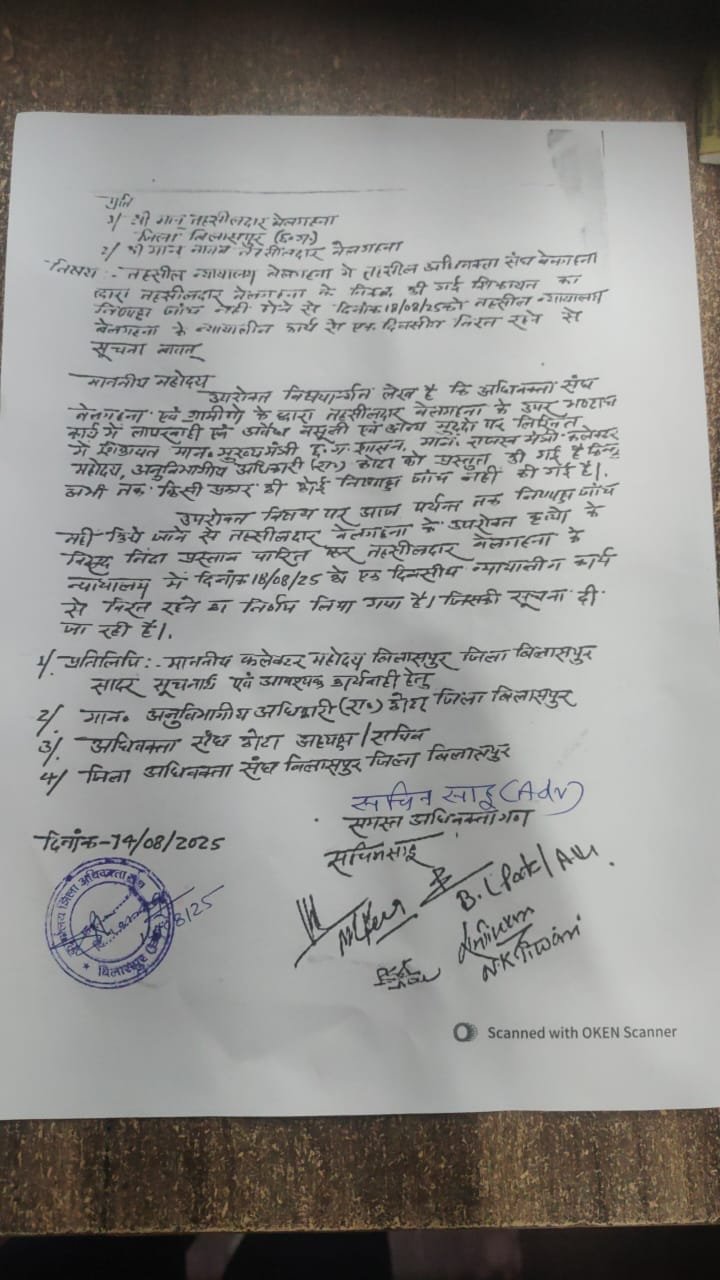 प्रति
1/ श्री मान् तहसीलदार बेलगहना
जिला बिलासपुर (छ.ग.)
2/ श्री मान नायब तहसीलदार बेलगहना
विषय:- तहसील न्यायालय बेलगहना में तहसील अधिवक्ता संघ बेलगहना
द्वारा तहसीलदार बेलगहना के विरूद्ध की गई शिकायत का
निष्पक्ष जांच नहीं होने से दिनांक 18/08/25 को तहसील न्यायालय
बेलगहना के न्यायालीन कार्य से एक दिवसीय विरत रहने से
सूचना बाबत्
माननीय महोदय
उपरोक्त विषयान्तर्गत लेख है कि अधिवक्ता संघ
बेलगहना एवं ग्रामीणों के द्वारा तहसीलदार बेलगहना के उपर भ्रष्टाचार
कार्य में लापरवाही एवं अवैध वसूली एवं अन्य मुद्दो पर लिखित
में शिकायत मान. मुख्यमंत्री छ.ग. शासन, मान. राजस्व मंत्री, कलेक्टर
महोदय, अनुविभागीय अधिकारी (रा०) कोटा को प्रस्तुत की गई है किन्तु
अभी तक किसी प्रकार की कोई निष्पक्ष जांच नहीं की गई है।
उपरोक्त विषय पर आज पर्यन्त तक निष्पक्ष जांच
नहीं किये जाने से तहसीलदार बेलगहना के उपरोक्त कृत्यो के
विरूद्ध निंदा प्रस्ताव पारित कर तहसीलदार बेलगहना के
न्यायालय में दिनांक 18/08/25 को एक दिवसीय न्यायालीन कार्य
से विरत रहने का निर्णय लिया गया है। जिसकी सूचना दी
जा रही है।
1/. प्रतिलिपि:- माननीय कलेक्टर महोदय बिलासपुर जिला बिलासपुर
सादर सूचनार्थ एवं आवश्यक कार्यवाही हेतु
2/ मान० अनुविभागीय अधिकारी (रा०) कोटा जिला बिलासपुर
3/. अधिवक्ता संघ कोटा अध्यक्ष/सचिव
4/ जिला अधिवक्ता संघ बिलासपुर जिला बिलासपुर
सचिन साहू (Adv)
समस्त अधिवक्तागण
सचिन साहू
दिनांक-14/08/2025
कार्यालय जिला अधिवक्ता संघ
बिलासपुर
N.K Tiwari
Scanned with OKEN Scanner